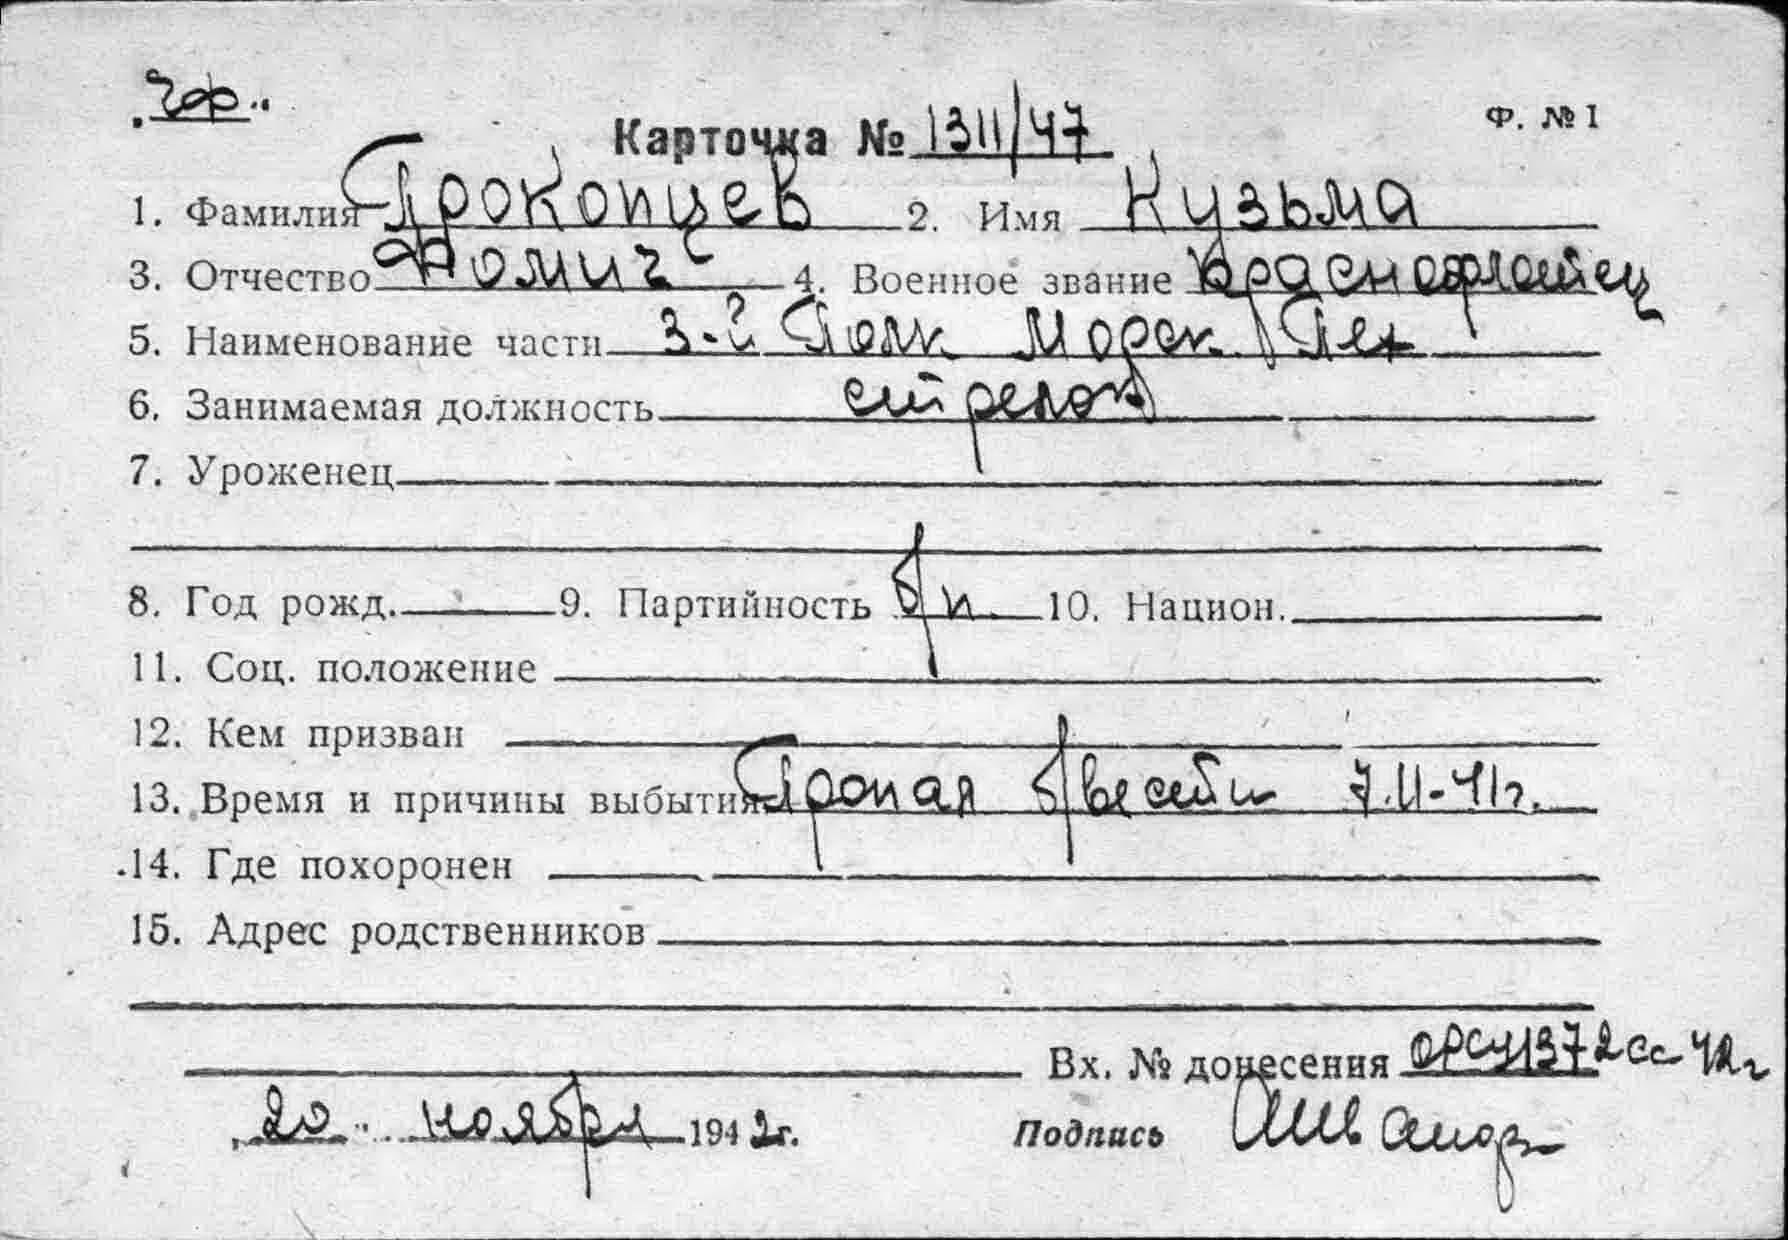 Чф.
Карточка № 1311/47 Ф. № 1
1. Фамилия Прокопцев 2. Имя Кузьма
3. Отчество Фомич 4. Военное звание Краснофлотец
5. Наименование части 3-й Полк Морск. Пех
6. Занимаемая должность стрелок
7. Уроженец
8. Год рожд. 9. Партийность б/п. 10. Национ.
11. Соц. положение
12. Кем призван
13. Время и причины выбытия Пропал б/вести 7.11-41г.
14. Где похоронен
15. Адрес родственников
Вх. № донесения ОРСУ1372сс-42г
20 ноября 1942г. Подпись